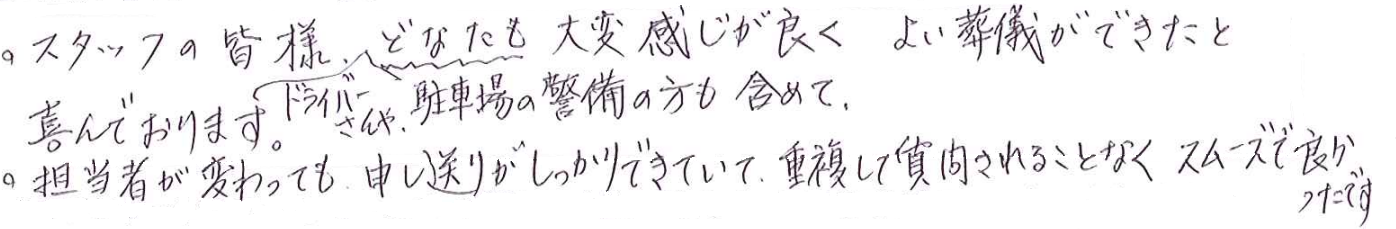 。スタッフの皆様、どなたも大変感じが良く よい葬儀ができたと
喜んでおります。ドライバーさんや、駐車場の警備の方も含めて、
。担当者が変わっても、申し送りがしっかりできていて、重複して質問されることなくスムーズで良か
ったです